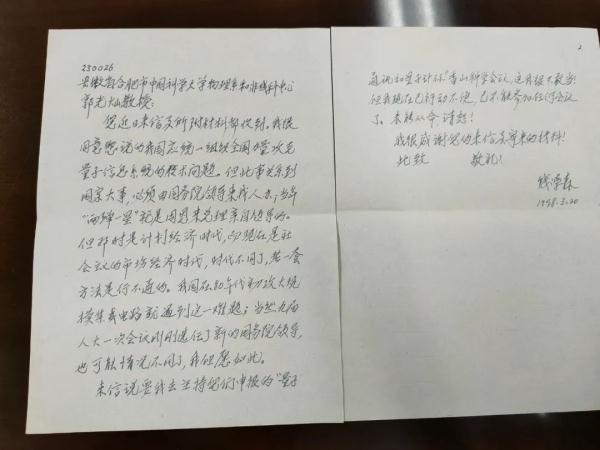 230026
安徽省合肥市中国科学大学物理系和非线性科中心
郭光灿教授：
您近日来信及所附材料都收到。我很
同意您说的我国应统一组织全国力量攻克
量子信息系统的技术问题。但此事关系到
国家大事，必须由国务院领导来找人办；当年
“两弹一星”就是周恩来总理亲自领导的。
但那时是计划经济时代，而现在是社
会主义的市场经济时代，时代不同了，老一套
方法是行不通的。我国在80年代初攻大规
模集成电路就遇到这一难题；当然九届
人大一次会议刚刚选任了新的国务院领导，
也可能情况不同了，我但愿如此。
来信说要我去主持您们申报的“量子
2
通讯和量子计算”香山科学会议，这我很不敢当！
但我现在已行动不便，已不能参加任何会议
了。未能从命，请恕！
我很感谢您的来信及寄来的材料！
此致 敬礼！
钱学森
1998.3.20